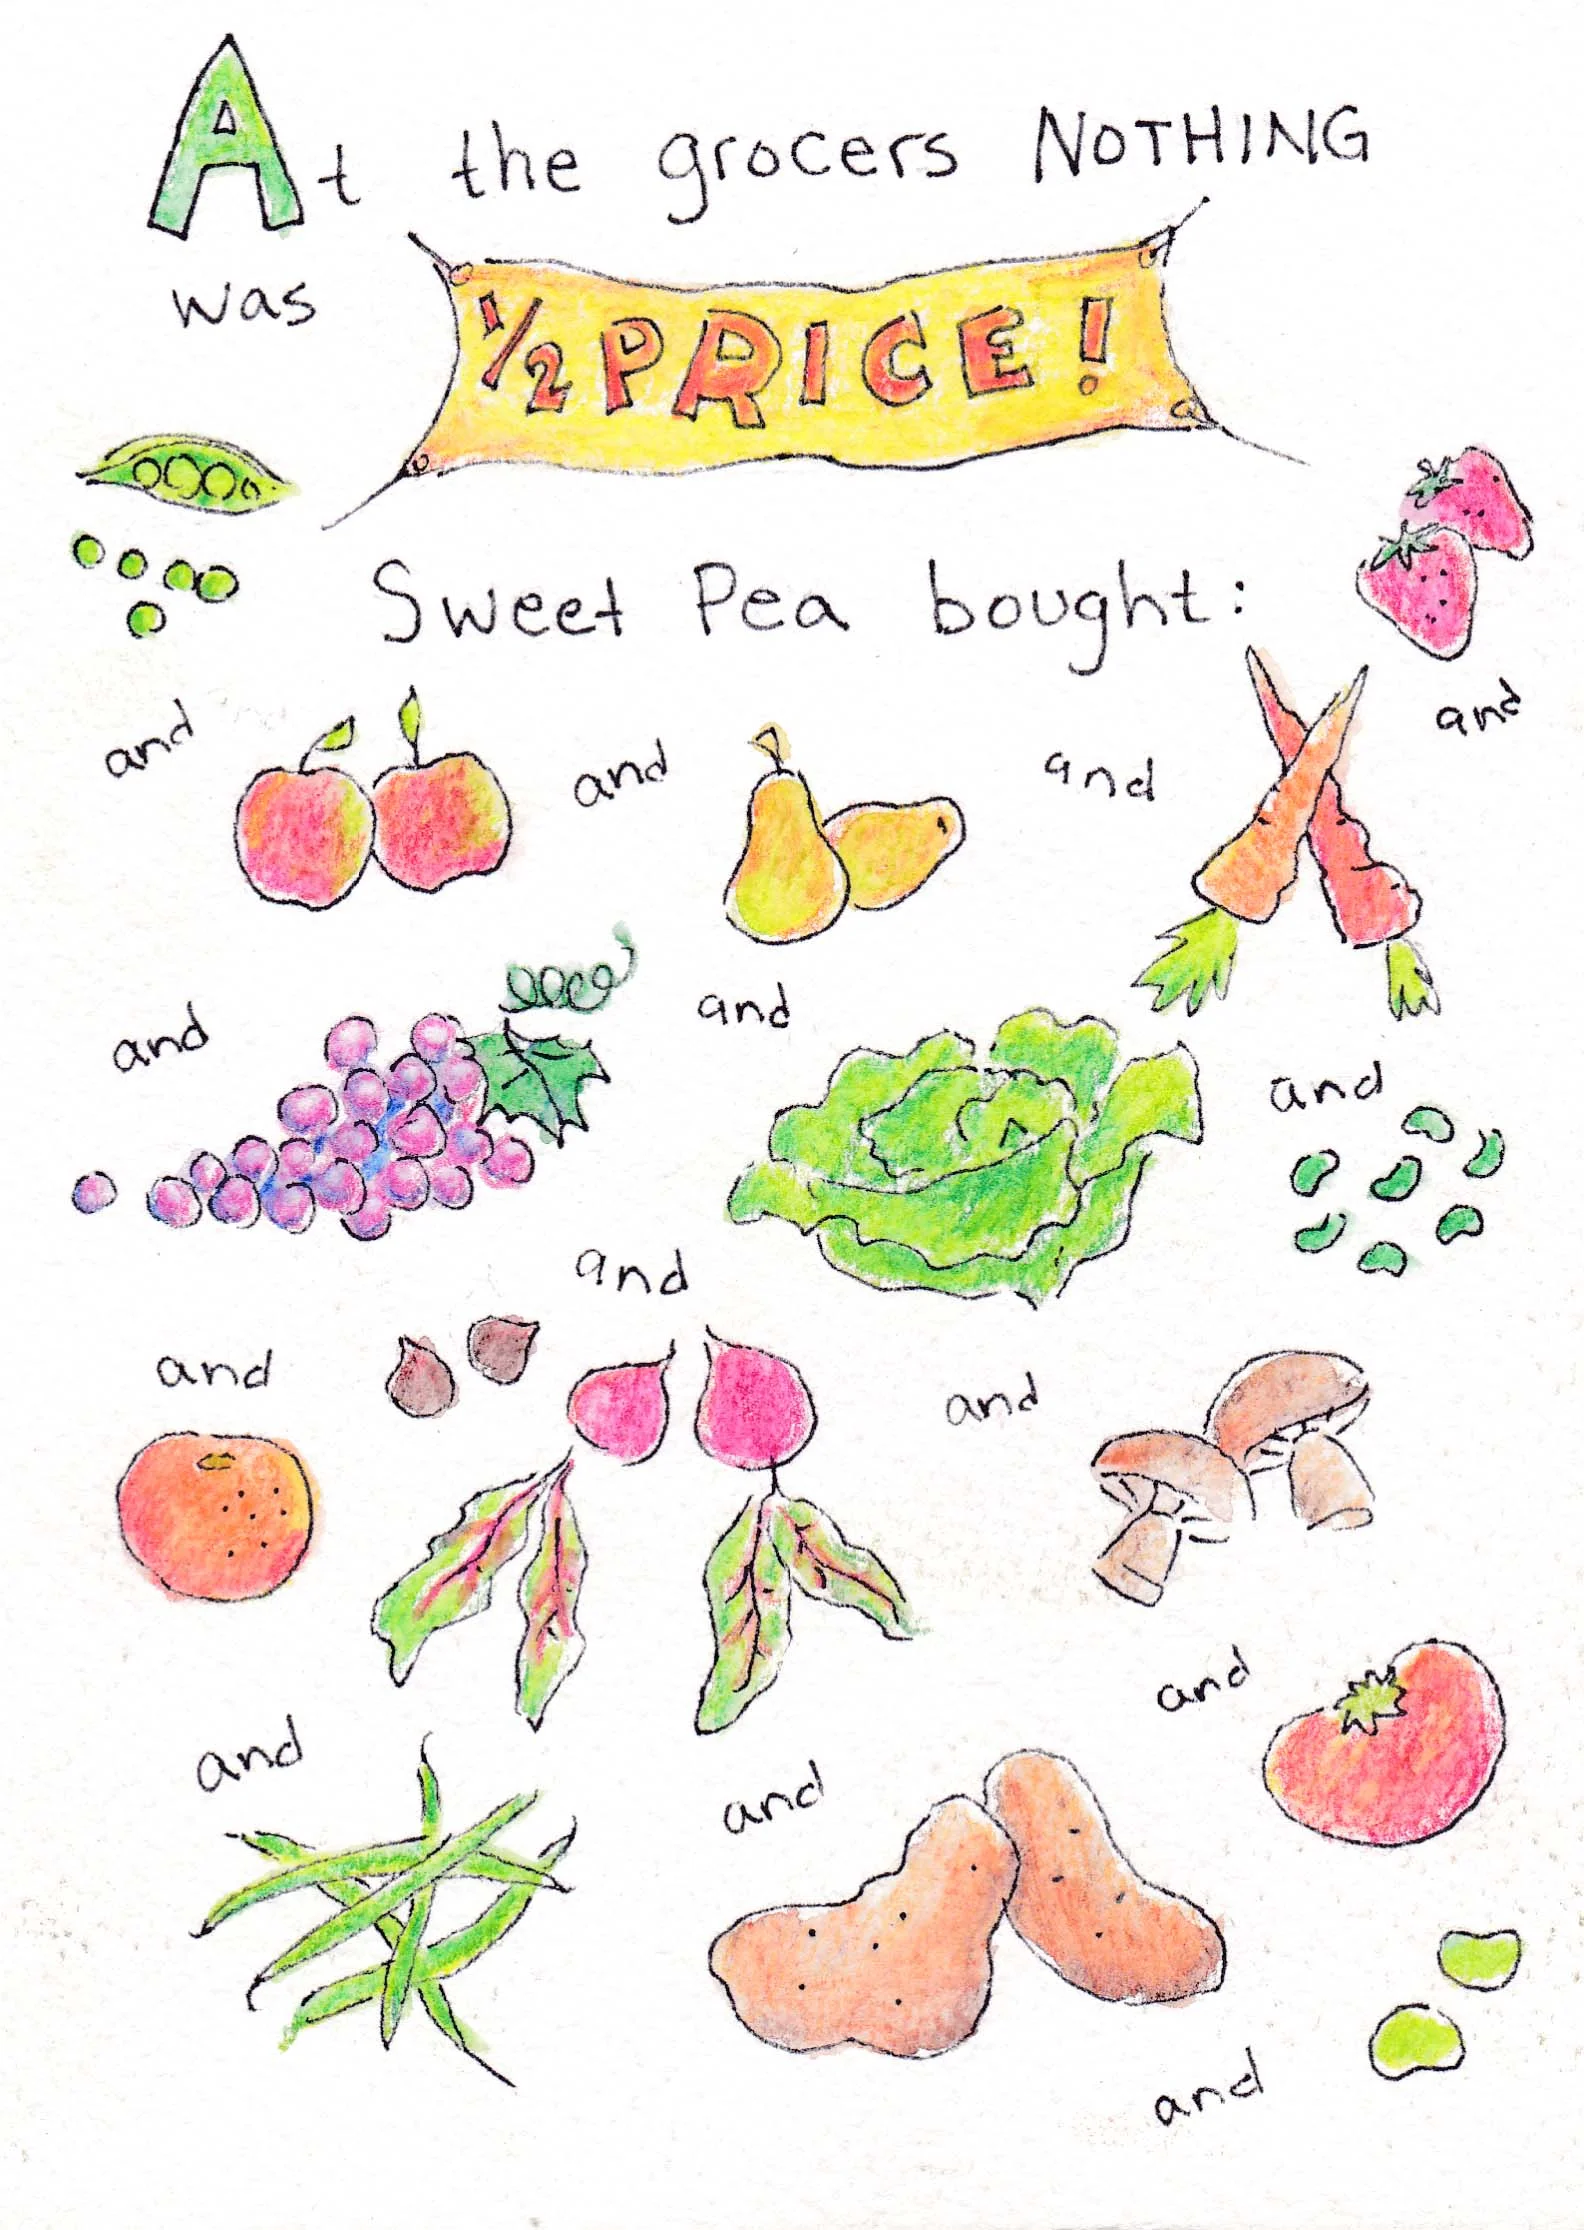 At the grocers NOTHING
was
½ PRICE!
Sweet Pea bought:
and
and
and
and
and
and
and
and
and
and
and
and
and
and